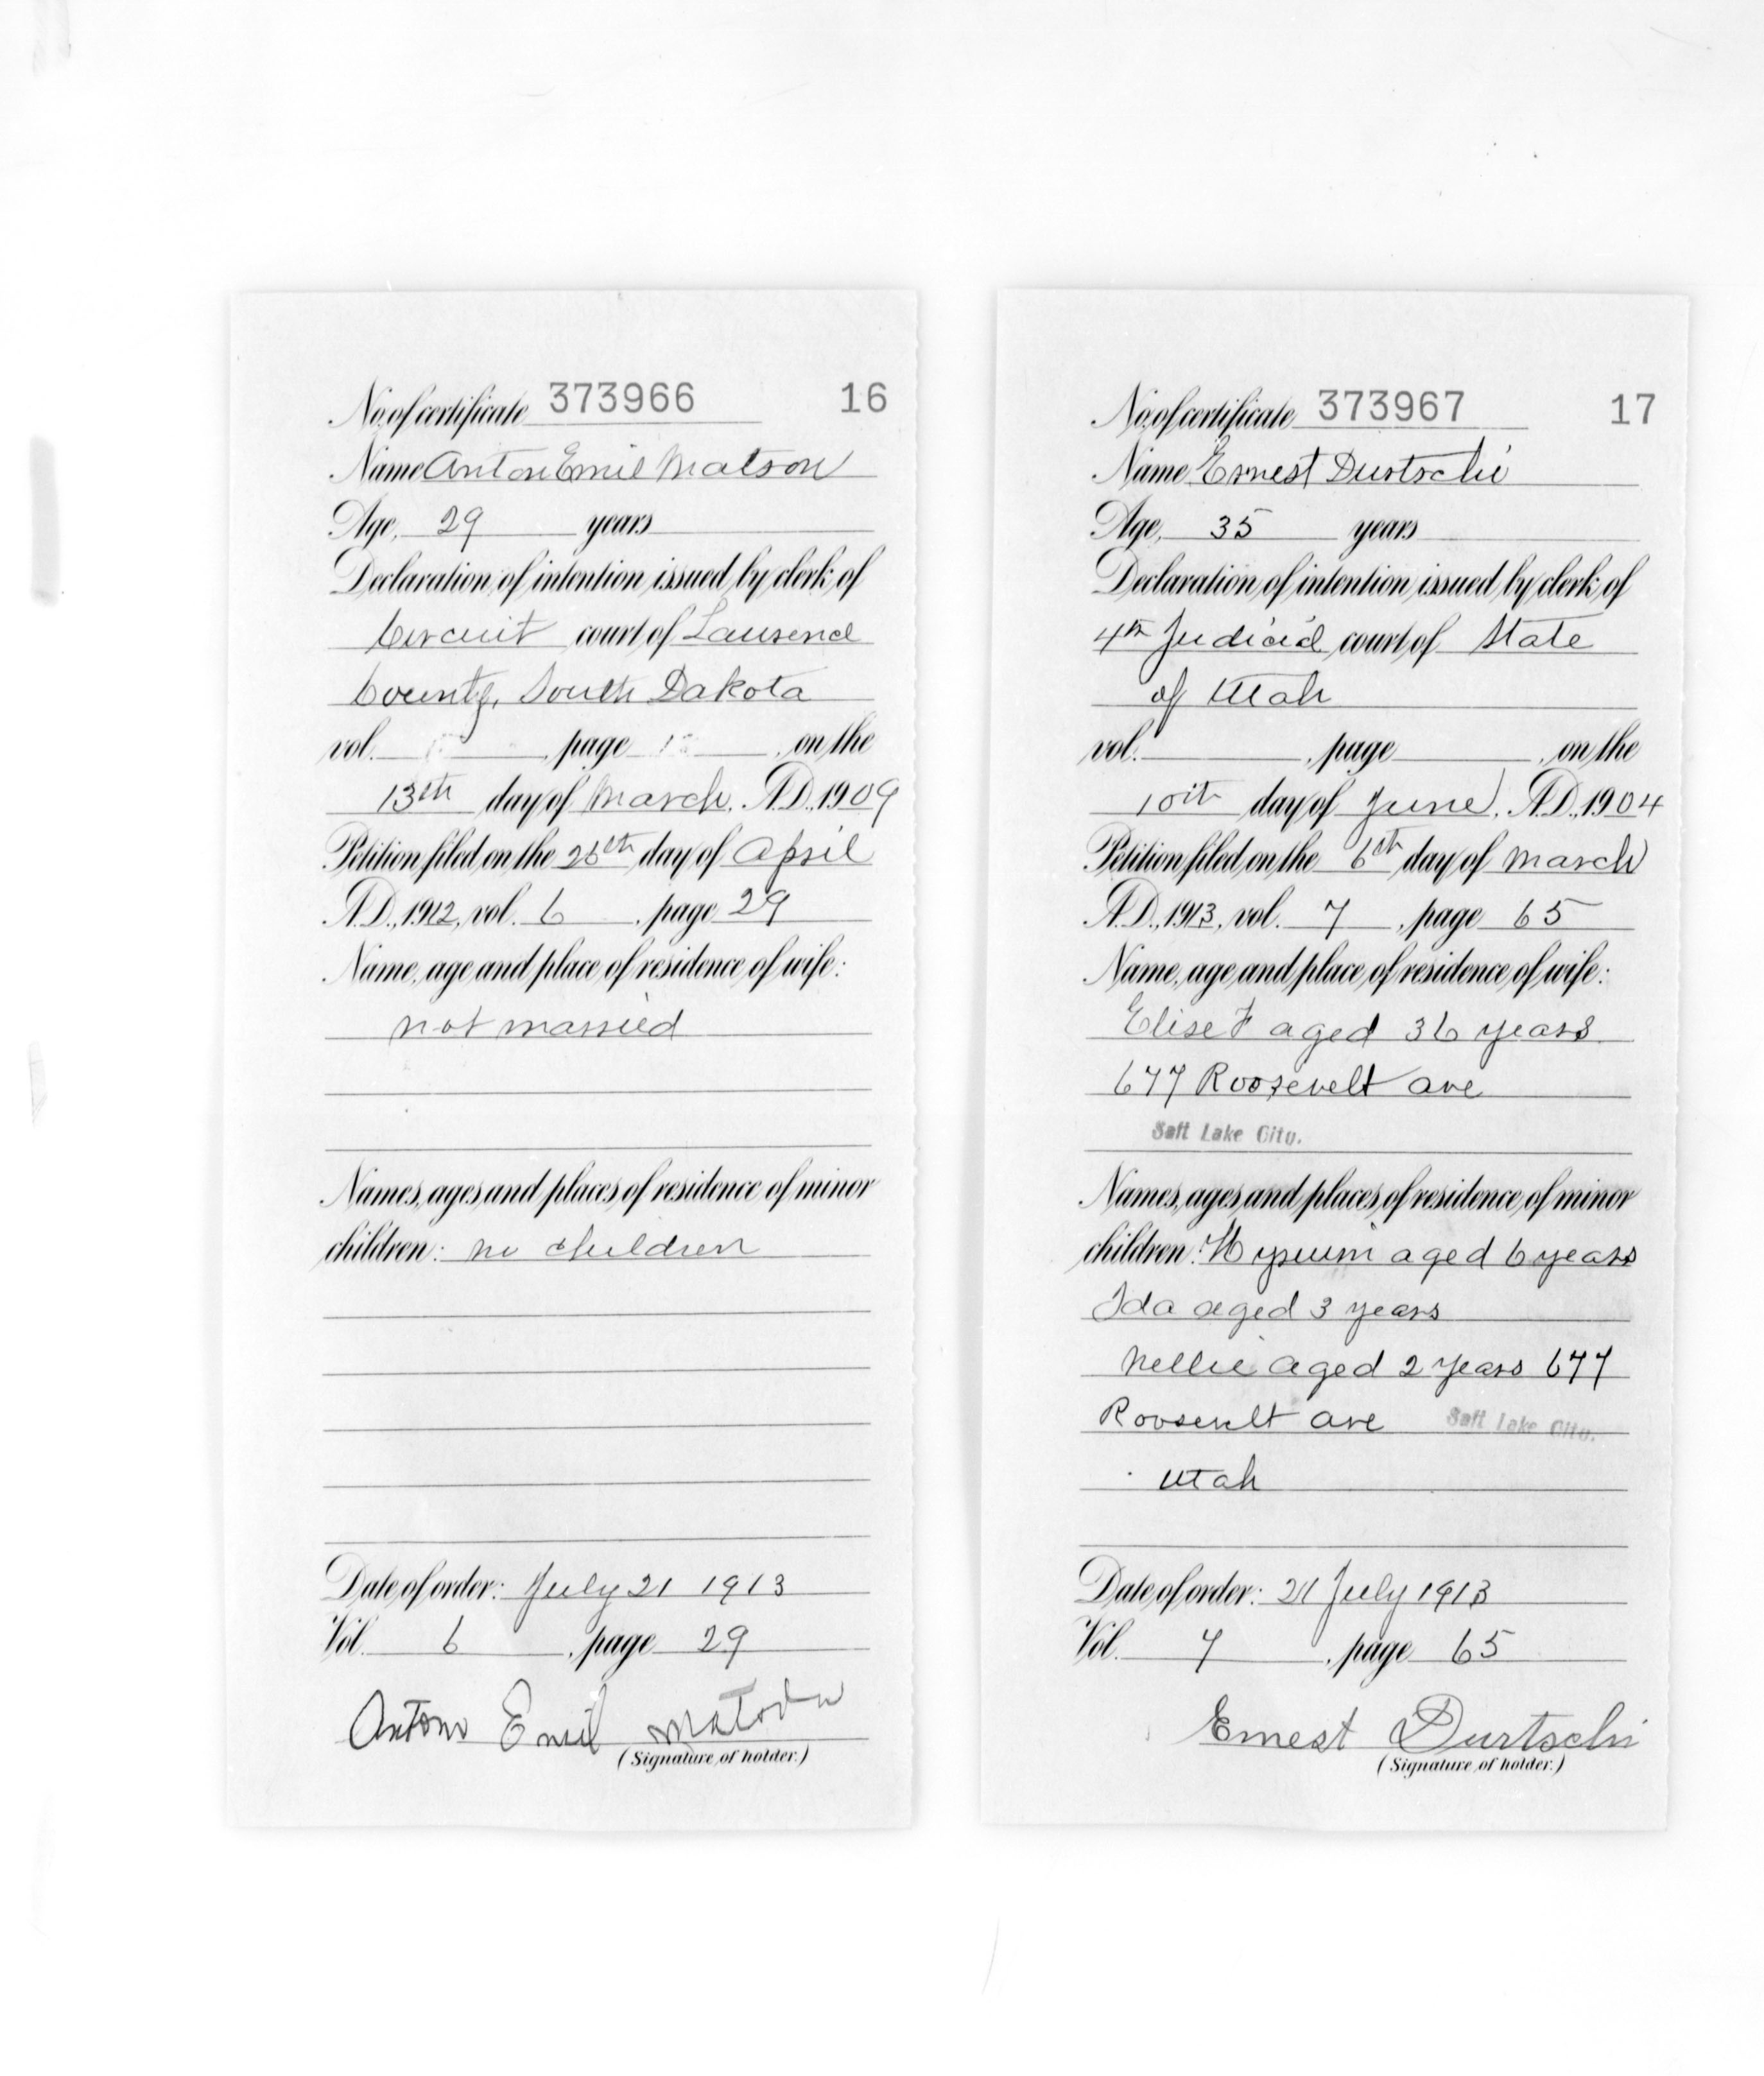 No. of certificate 373966 16
Name Anton Emil Matson
Age, 29 years
Declaration of intention issued by clerk of
Circuit court of Lawrence
County, South Dakota
vol. , page , on the
13th day of March, A.D. 1909
Petition filed on the 26th day of April
A.D., 1912, vol. 6, page 29
Name, age and place of residence of wife:
not married
Names, ages and places of residence of minor
children: no children
Date of order: July 21 1913
Vol. 6, page 29
Anton Emil Matson
(Signature of holder.)
No. of certificate 373967 17
Name Ernest Durtschi
Age, 35 years
Declaration of intention issued by clerk of
4th Judicial court of State
of Utah
vol. , page , on the
10th day of June, A.D., 1904
Petition filed on the 6th day of March
A.D., 1913, vol. 7, page 65
Name, age and place of residence of wife:
Elise F aged 36 years
677 Roosevelt ave
Salt Lake City.
Names, ages and places of residence of minor
children: aged 6 years
Ida aged 3 years
Nellie aged 2 years 677
Roosevelt ave Salt Lake City.
Utah
Date of order: 21 July 1913
Vol. 7, page 65
Ernest Durtschi
(Signature of holder.)